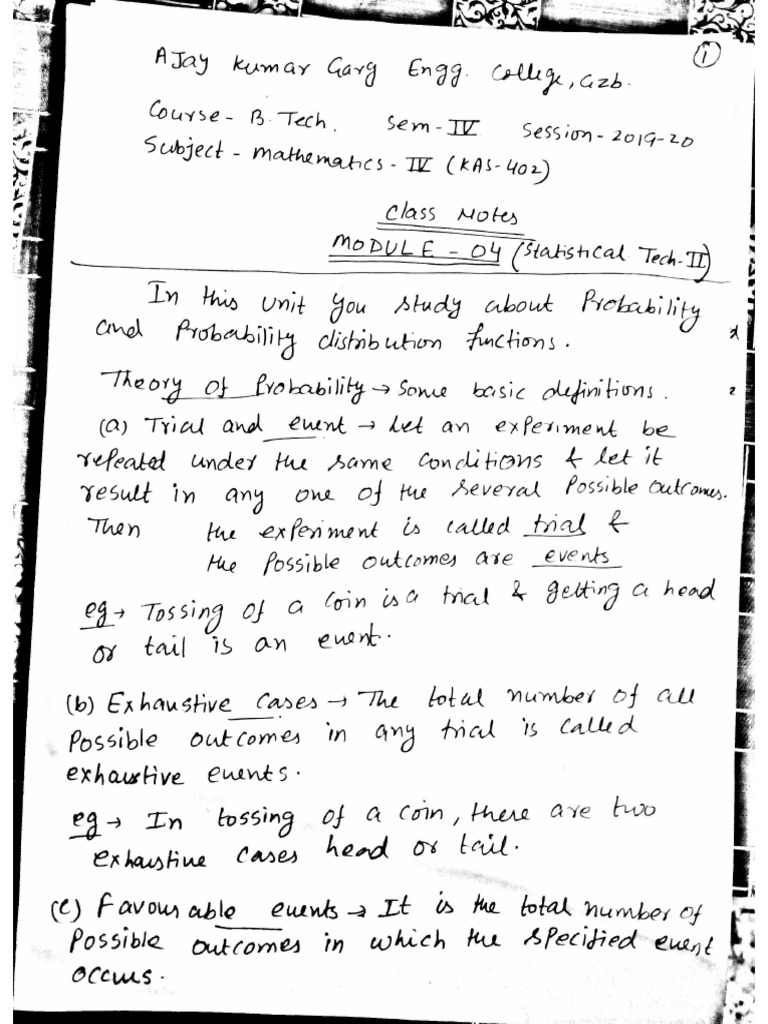 ①
AJay Kumar Garg Engg. College, Gzb.
Course - B. Tech. Sem - IV Session - 2019-20
Subject - Mathematics - IV (KAS-402)
Class Notes
MODULE - 04 (Statistical Tech-II)
In this unit you study about Probability
and Probability distribution functions.
Theory of Probability → Some basic definitions.
(a) Trial and event → Let an experiment be
repeated under the same conditions & let it
result in any one of the several Possible outcomes.
Then the experiment is called trial &
the Possible outcomes are events
eg → Tossing of a coin is a trial & getting a head
or tail is an event.
(b) Exhaustive Cases → The total number of all
Possible outcomes in any trial is called
exhaustive events.
eg → In tossing of a coin, there are two
exhaustive cases head or tail.
(c) Favourable events → It is the total number of
Possible outcomes in which the specified event
occurs.